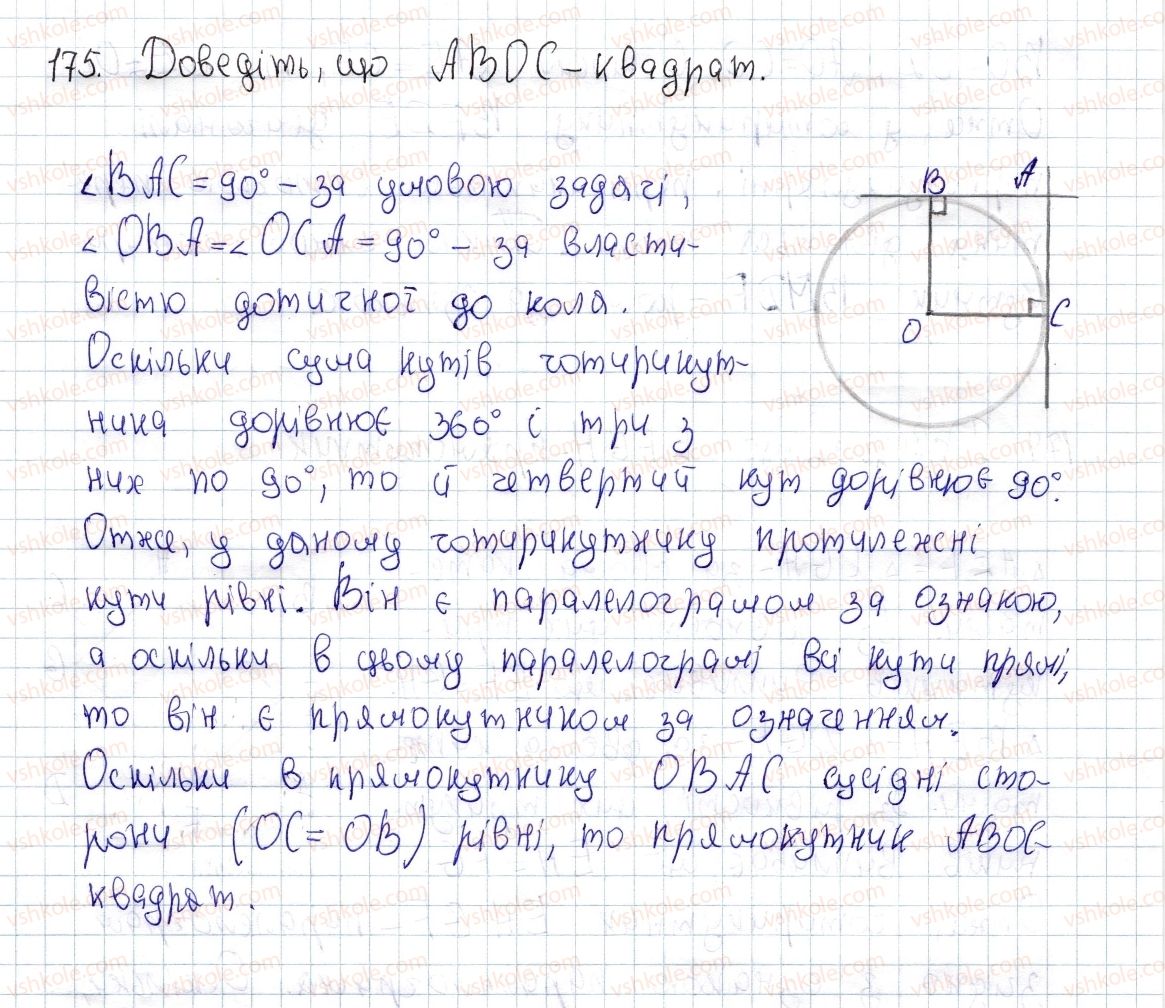 175. Доведіть, що ABOC - квадрат.
∠BAC = 90° - за умовою задачі,
∠OBA = ∠OCA = 90° - за власти-
вістю дотичної до кола.
Оскільки сума кутів чотирикут-
ника дорівнює 360° і три з
них по 90°, то й четвертий кут дорівнює 90°.
Отже, у даному чотирикутнику протилежні
кути рівні. Він є паралелограмом за ознакою,
а оскільки в цьому паралелограмі всі кути прямі,
то він є прямокутником за означенням.
Оскільки в прямокутнику OBAC сусідні сто-
рони (OC = OB) рівні, то прямокутник ABOC -
квадрат.
B A
O C